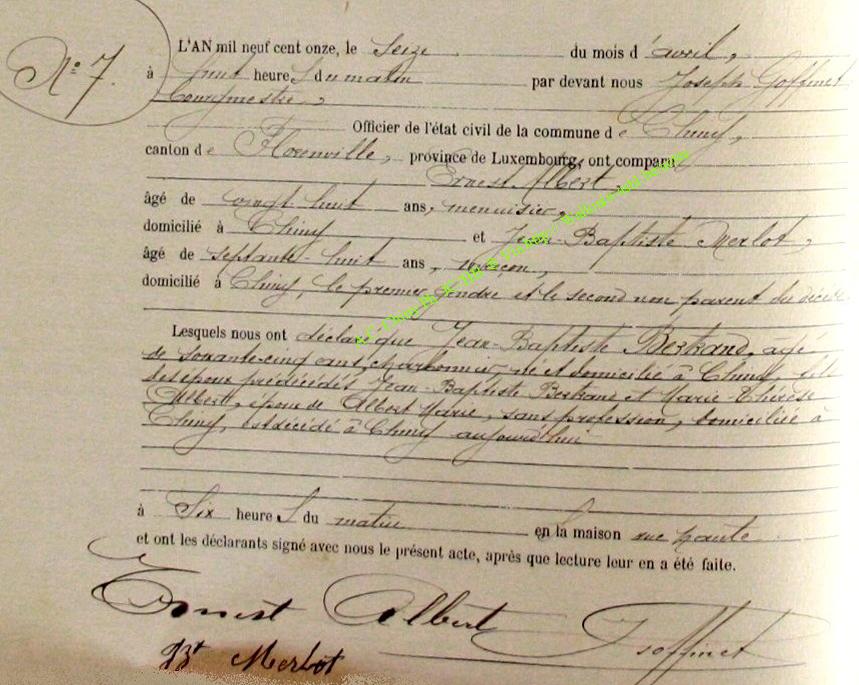 N° 7.
L'AN mil neuf cent onze, le Seize du mois d'avril,
à huit heures du matin par devant nous Joseph Goffinet
bourgmestre,
Officier de l'état civil de la commune de Chiny,
canton de Florenville, province de Luxembourg, ont comparu
Ernest Albert,
âgé de vingt huit ans, menuisier,
domicilié à Chiny et Jean-Baptiste Merlot,
âgé de septante-huit ans, maçon,
domicilié à Chiny, le premier gendre et le second non parent du décédé
Lesquels nous ont déclaré que Jean-Baptiste Bertrand, agé
de soixante-cinq ans, charbonnier, né et domicilié à Chiny, fils
des époux prédécédés Jean-Baptiste Bertrand et Marie-Thérèse
Albert, époux de Albert Marie, sans profession, domiciliée à
Chiny, est décédé à Chiny aujourd'hui
à Six heures du matin en la maison rue haute
et ont les déclarants signé avec nous le présent acte, après que lecture leur en a été faite.
Ernest Albert JGoffinet
JBt Merlot